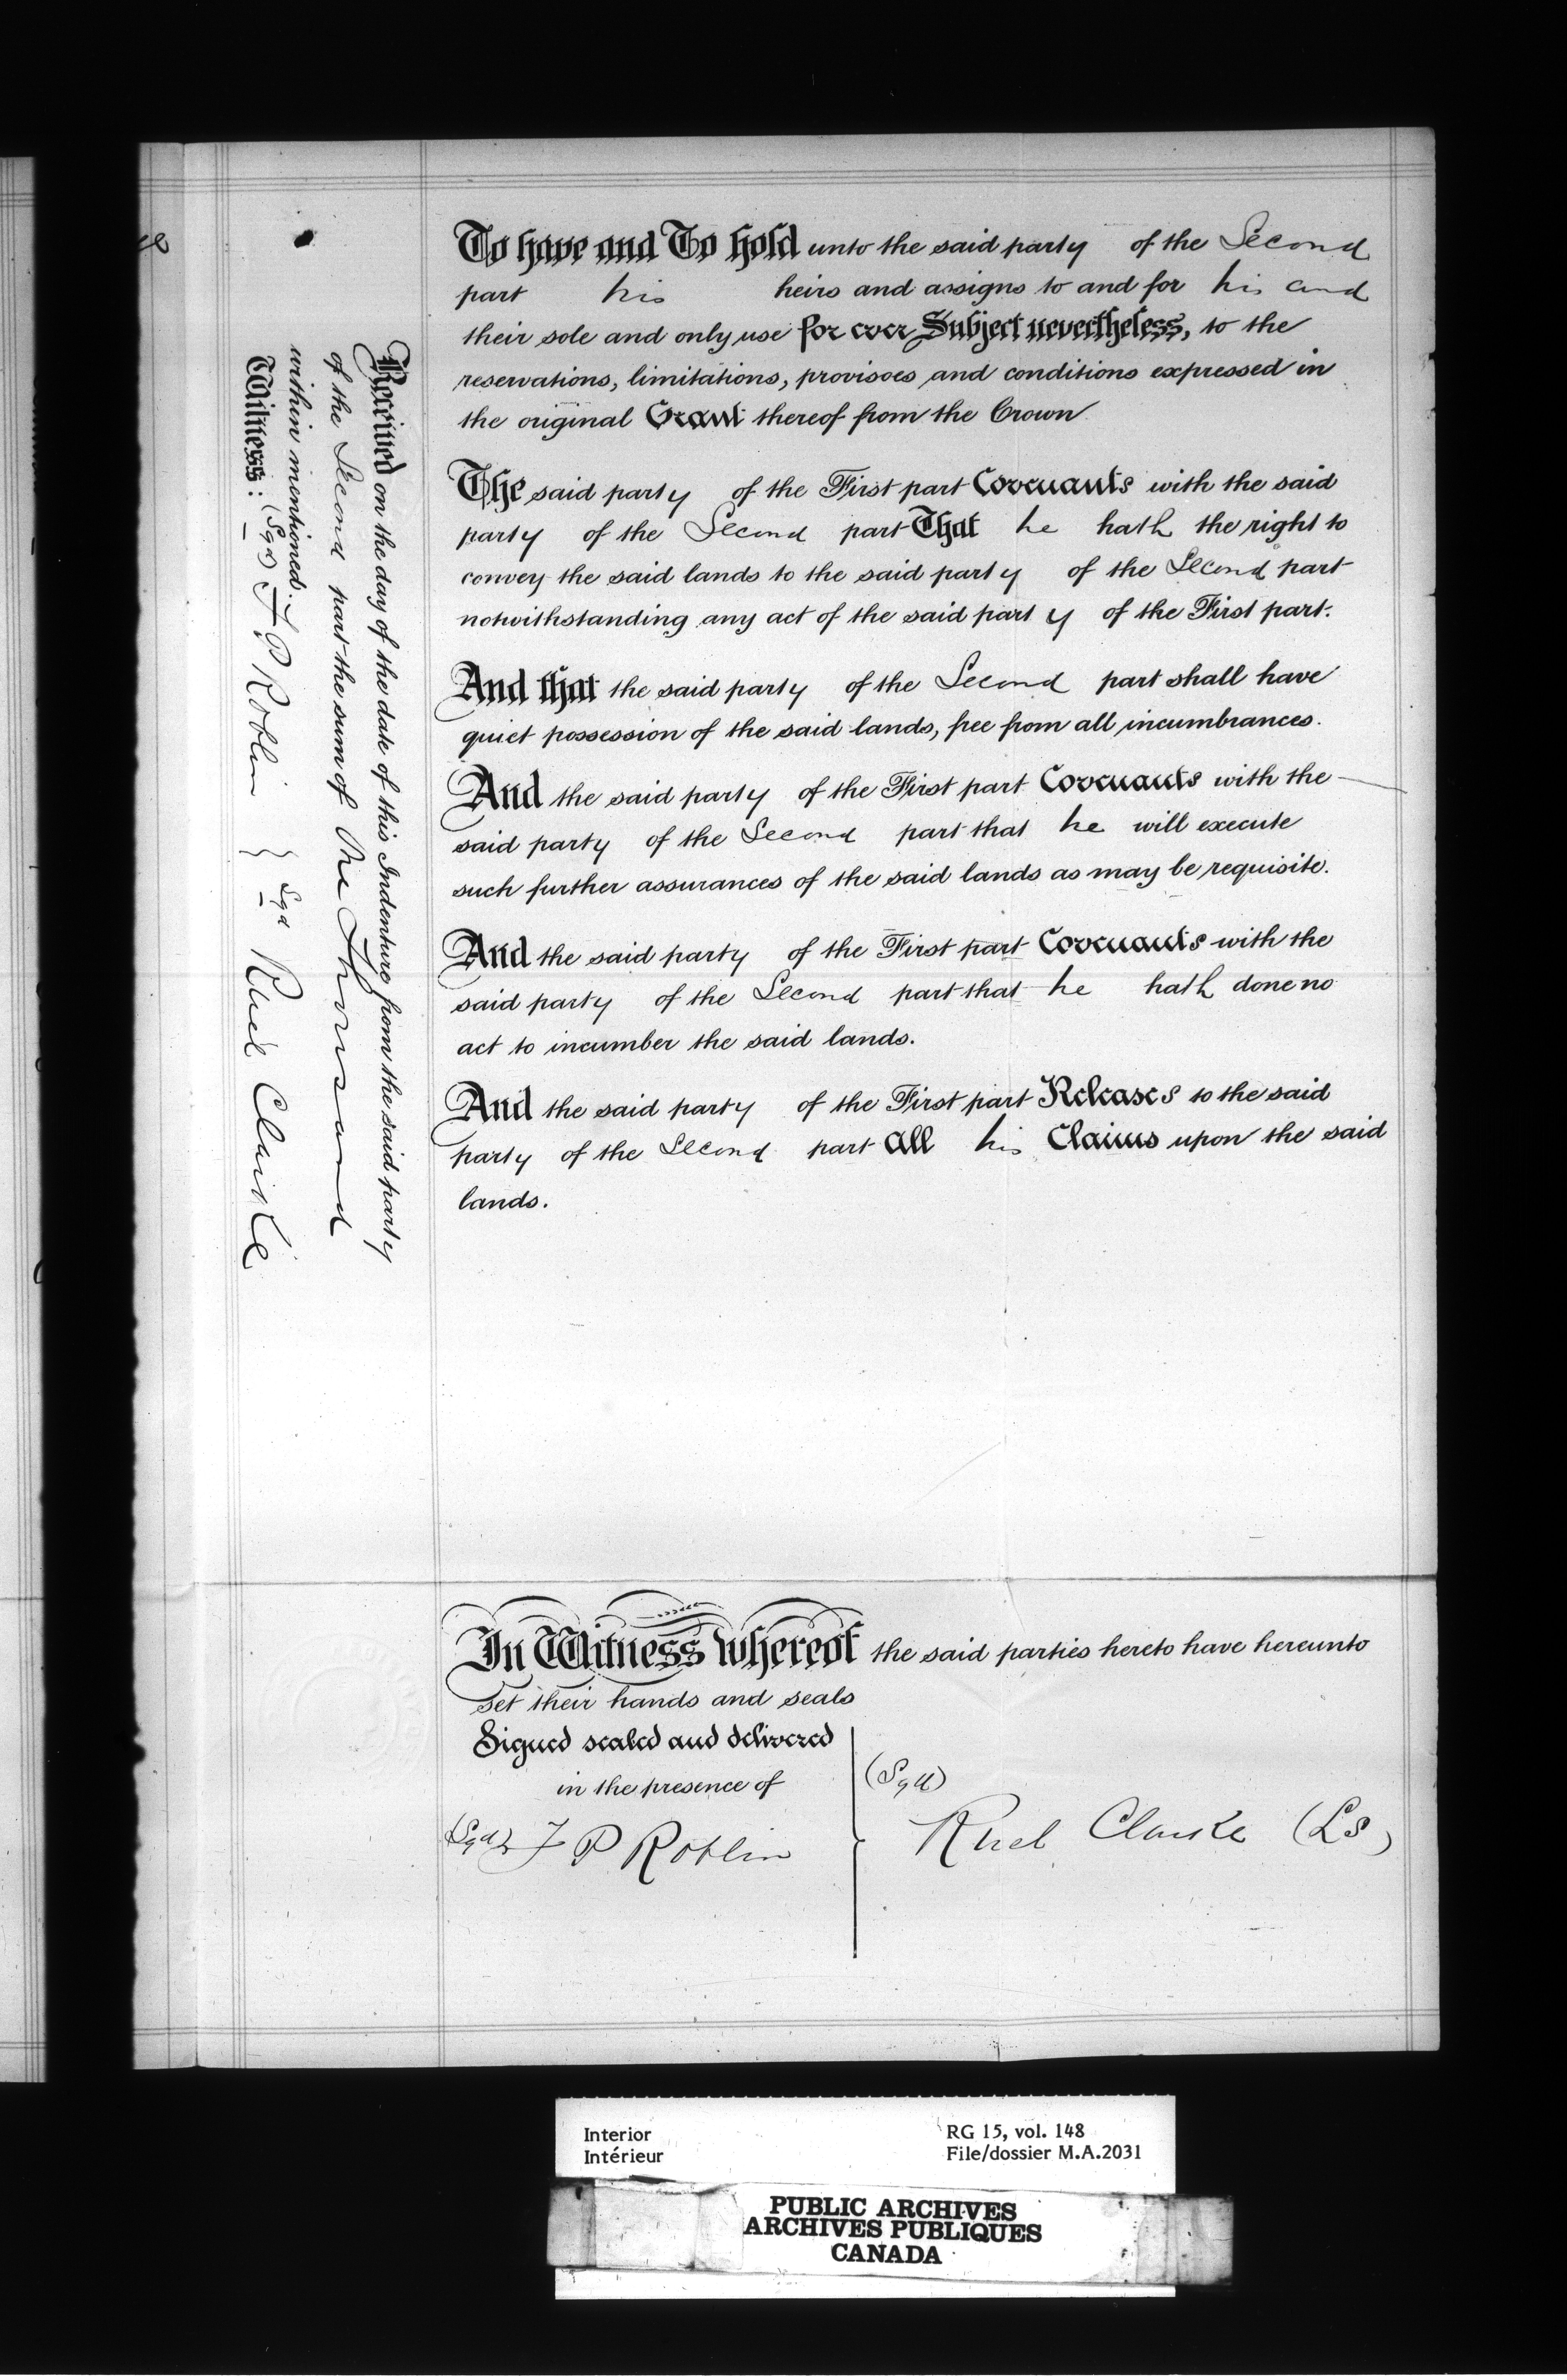 To have and To hold unto the said party of the Second
part his heirs and assigns to and for his and
their sole and only use for ever Subject nevertheless, to the
reservations, limitations, provisoes and conditions expressed in
the original Grant thereof from the Crown
The said party of the First part Covenants with the said
party of the Second part That he hath the right to
convey the said lands to the said party of the Second part
notwithstanding any act of the said party of the First part.
And that the said party of the Second part shall have
quiet possession of the said lands, free from all incumbrances.
And the said party of the First part Covenants with the
said party of the Second part that he will execute
such further assurances of the said lands as may be requisite.
And the said party of the First part Covenants with the
said party of the Second part that he hath done no
act to incumber the said lands.
And the said party of the First part Releases to the said
party of the Second part all his Claims upon the said
lands.
Received on the day of the date of this Indenture from the said party
of the Second part the sum of One Thousand
within mentioned.
Witness: (Sgd) F P Roblin } Sgd Ruel Clarke
In Witness whereof the said parties hereto have hereunto
set their hands and seals
Signed sealed and delivered
in the presence of
(Sgd) F P Roblin
(Sgd)
Ruel Clarke (LS)
Interior
Intérieur
RG 15, vol. 148
File/dossier M.A.2031
PUBLIC ARCHIVES
ARCHIVES PUBLIQUES
CANADA